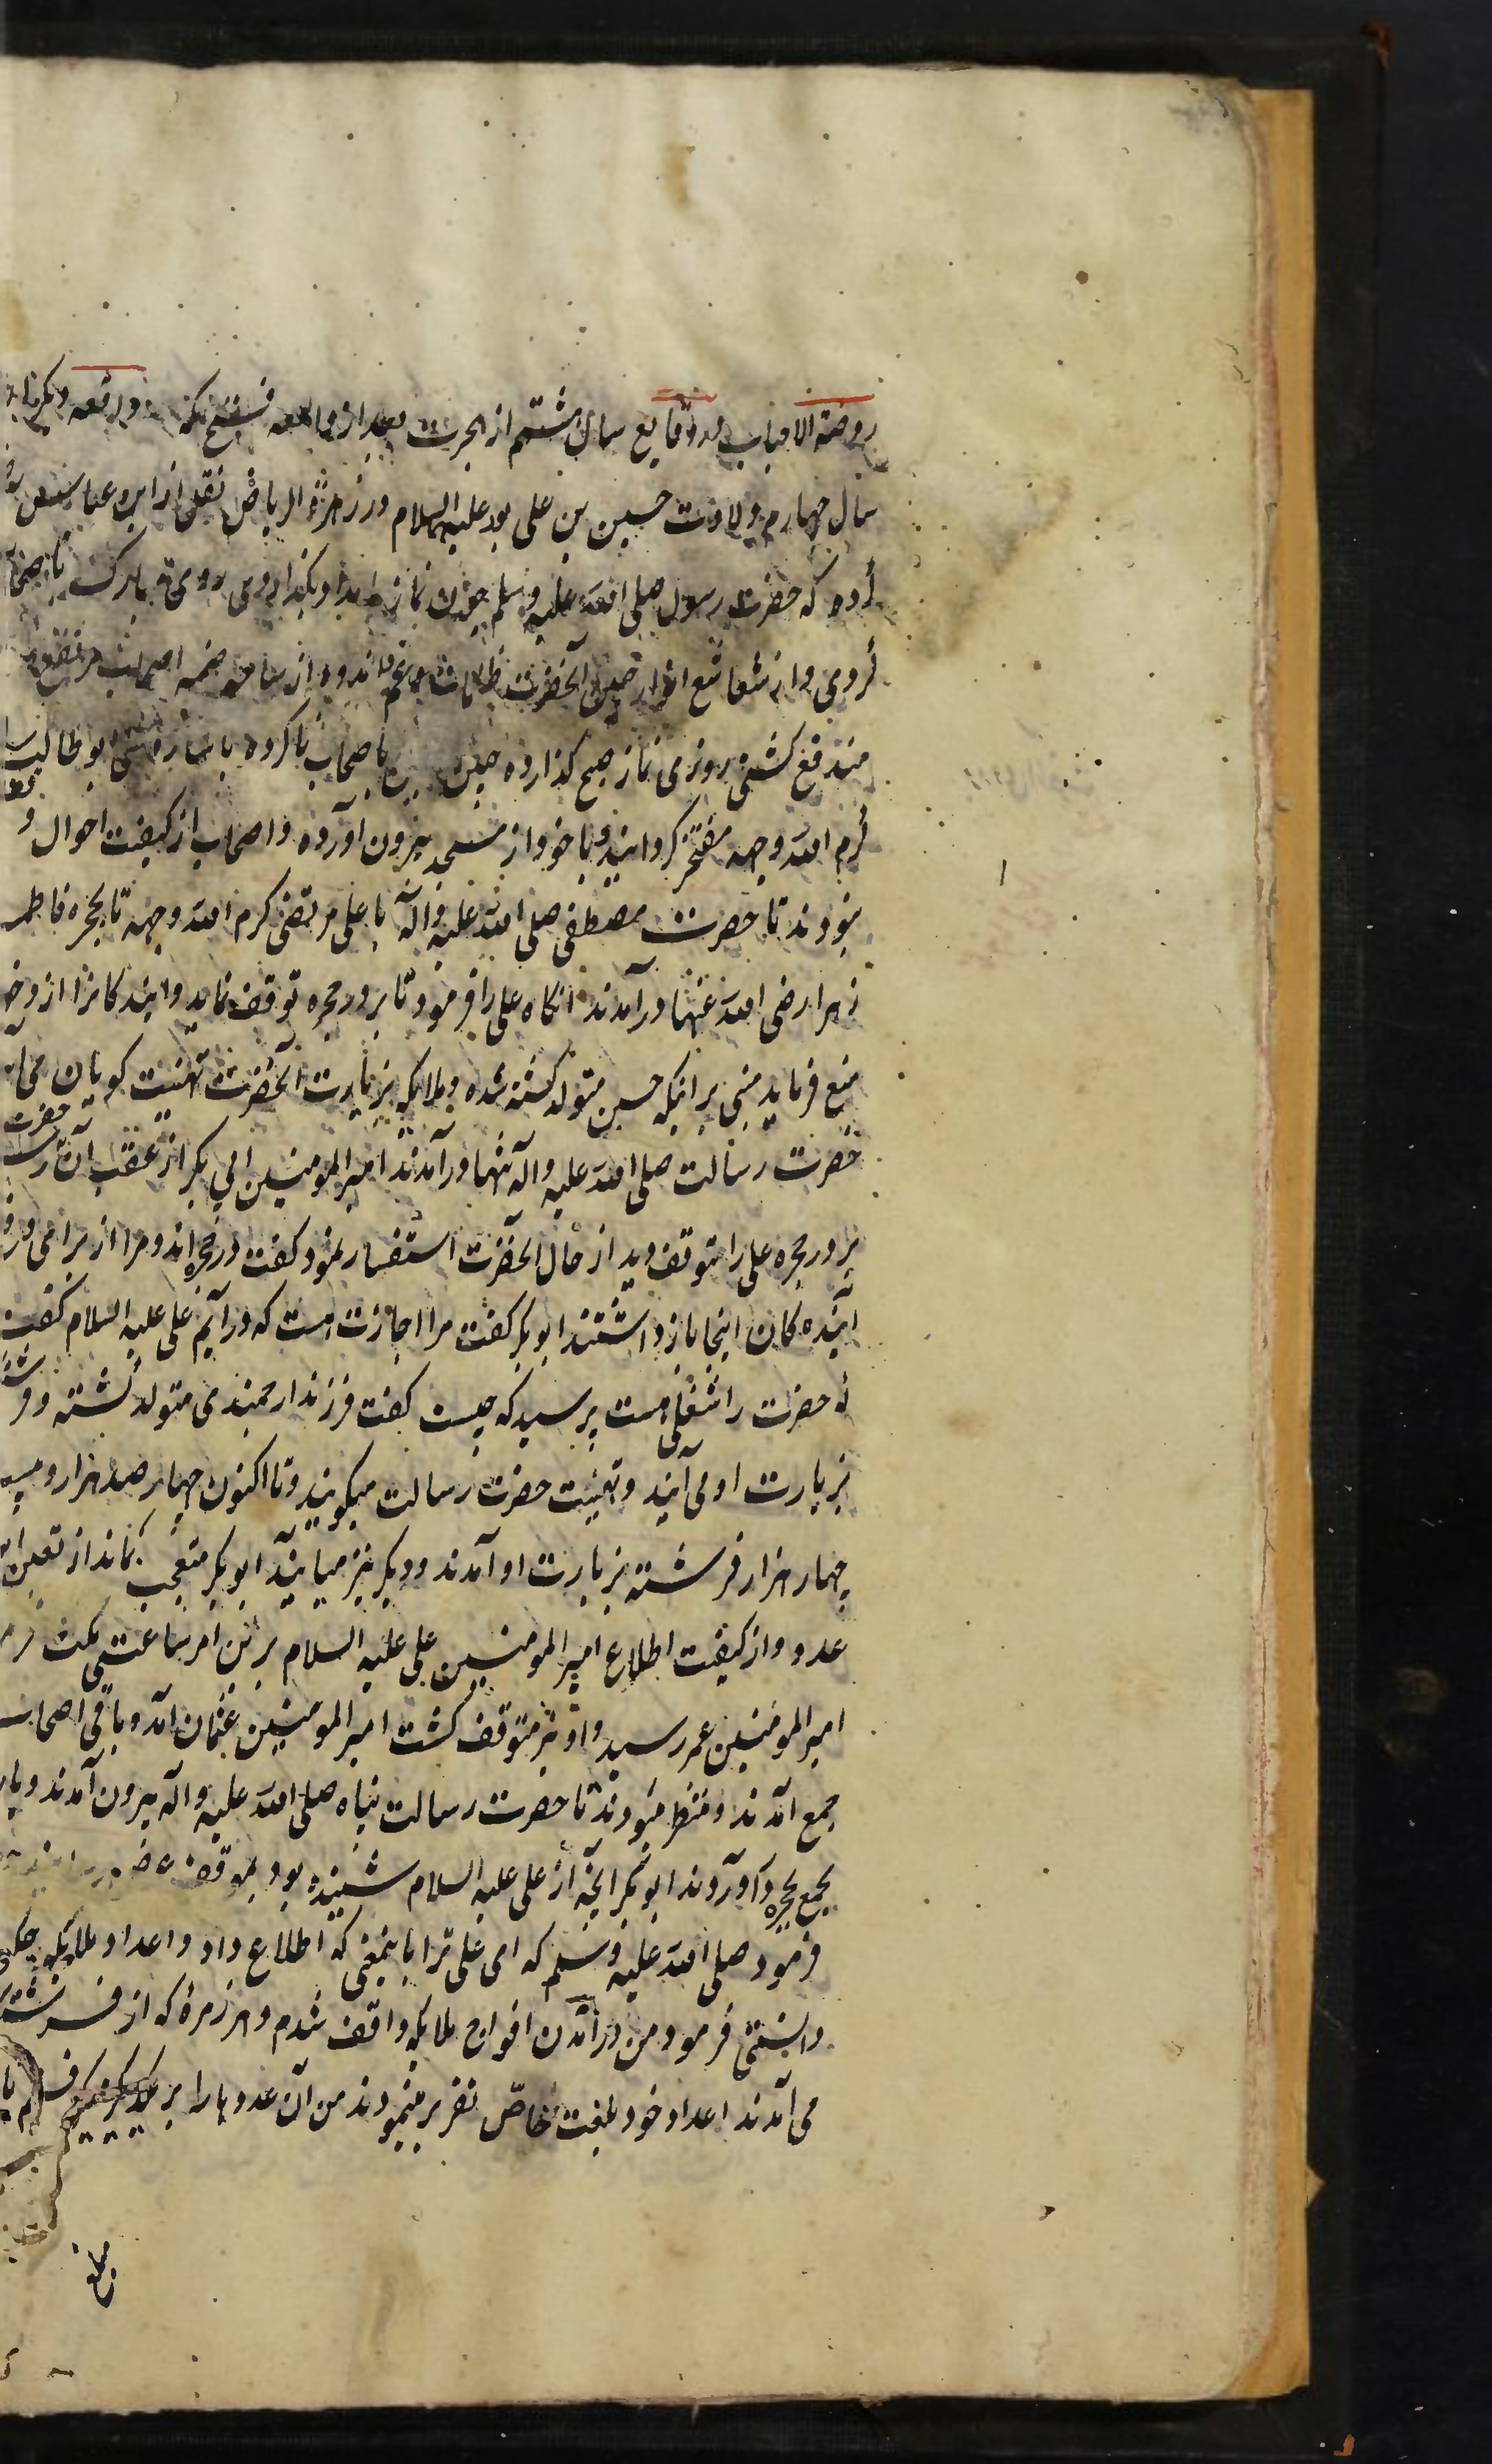 روضة الاحباب در وقایع سال هشتم از هجرت بعد از واقعه فتح مکه واقعه دیگر
سال چهارم ولادت حسین بن علی بود علیه السلام در زهرة الریاض نقل از ابن عباس
که حضرت رسول صلی الله علیه وسلم چون نماز بامداد بگذاردی روی مبارک با صحابه
کردی و از شعاشع انوار جبین آنحضرت ظلمات غم و اندوه از ساحه ضمیر اصحاب مرتفع و
مندفع کشتی روزی نماز صبح کذارده جبین باصحاب ناکرده ابو طالب را
کرم الله وجهه مفتخر کردانید و با خود از مسجد بیرون آورده و اصحاب از کیفیت احوال
نبودند تا حضرت مصطفی صلی الله علیه وآله با علی مرتضی کرم الله وجهه تا بحجره فاطمه
زهرا رضی الله عنها درآمدند آنکاه علی را فرمود تا بر در حجره توقف نماید و آیندکانرا از دخول
منع فرماید مبنی بر آنکه حسین متولد کشته شده و ملایکه بزیارت آنحضرت تهنیت کویان می‌آیند
حضرت رسالت صلی الله علیه وآله تنها درآمدند امیر المومنین ابی بکر از عقب آن حضرت
بر در حجره علی را متوقف دید از حال آنحضرت استفسار نمود کفت در حجره‌اند و مرا از برای
آینده کان اینجا بازداشتند ابو بکر کفت مرا اجازت هست که درآیم علی علیه السلام کفت
که حضرت را شغلی هست پرسید که چیست کفت فرزند ارجمندی متولد کشته و فرشته
بزیارت او می‌آیند و تهنیت حضرت رسالت میکویند و تا اکنون چهار صد هزار و بیست
چهار هزار فرشته بزیارت او آمدند و دیکر نیز میآیند ابو بکر متعجب بماند از تعین آن
عدد و از کیفیت اطلاع امیر المومنین علی علیه السلام بر این امر ساعتی مکث
امیر المومنین عمر رسید و او نیز متوقف کشت امیر المومنین عثمان آمد و باقی اصحاب
جمع آمدند و منتظر میبودند تا حضرت رسالت پناه صلی الله علیه وآله بیرون آمدند و
بجمع بحجره درآوردند ابو بکر آنچه از علی علیه السلام شنیده بود بموقف
فرمود صلی الله علیه وسلم که ای علی ترا باینمعنی که اطلاع داد و اعداد ملایکه
دانستی فرمود من درآمدن افواج ملایکه واقف شدم و هر زمره که از فرشته
می‌آمدند اعداد خود بلغت خاص تقریر مینمودند من آن عددها را بر یکدیگر